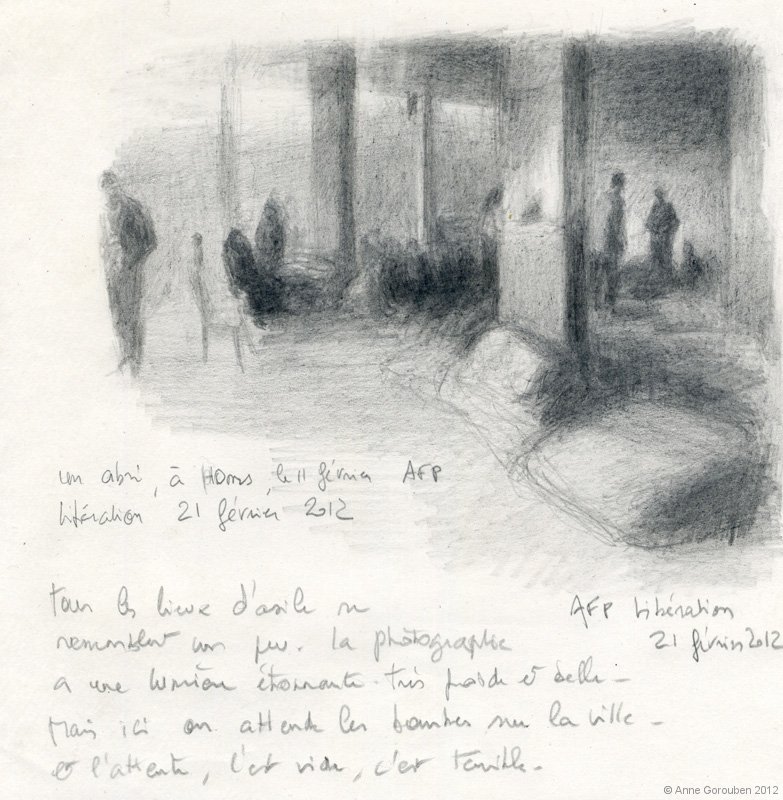 un abri, à Homs, le 11 février AFP
Libération 21 février 2012
AFP Libération
21 février 2012
tous les lieux d'asile se
ressemblent un peu. la photographie
a une lumière étonnante. très froide et belle -
Mais ici on attend les bombes sur la ville -
et l'attente, c'est vide, c'est terrible.
© Anne Gorouben 2012